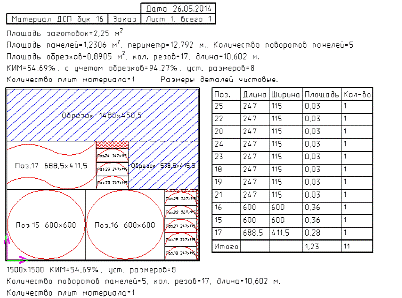 Дата 26.05.2014
Материал ДСП бук 16 Заказ Лист 1, всего 1
Площадь заготовок=2,25 м²
Площадь панелей=1,2306 м², периметр=12,792 м., Количество поворотов панелей=5
Площадь обрезков=0,8905 м², кол. резов=17, длина=10,602 м.
КИМ=54,69%, с учетом обрезков=94,27%, уст. размеров=8
Количество плит материала=1 Размеры деталей чистовые.
Поз. Длина Ширина Площадь Кол-во
25 247 115 0,03 1
22 247 115 0,03 1
20 247 115 0,03 1
24 247 115 0,03 1
23 247 115 0,03 1
18 247 115 0,03 1
19 247 115 0,03 1
21 247 115 0,03 1
16 600 600 0,36 1
15 600 600 0,36 1
17 688,5 411,5 0,28 1
Итого 1,23 11
Обрезок 1480x450,5
Поз.17 688,5x411,5
Поз.15 600x600
Поз.16 600x600
1500x1500 КИМ=54,69%, уст. размеров=8
Количество поворотов панелей=5, кол. резов=17, длина=10,602 м.
Количество плит материала=1